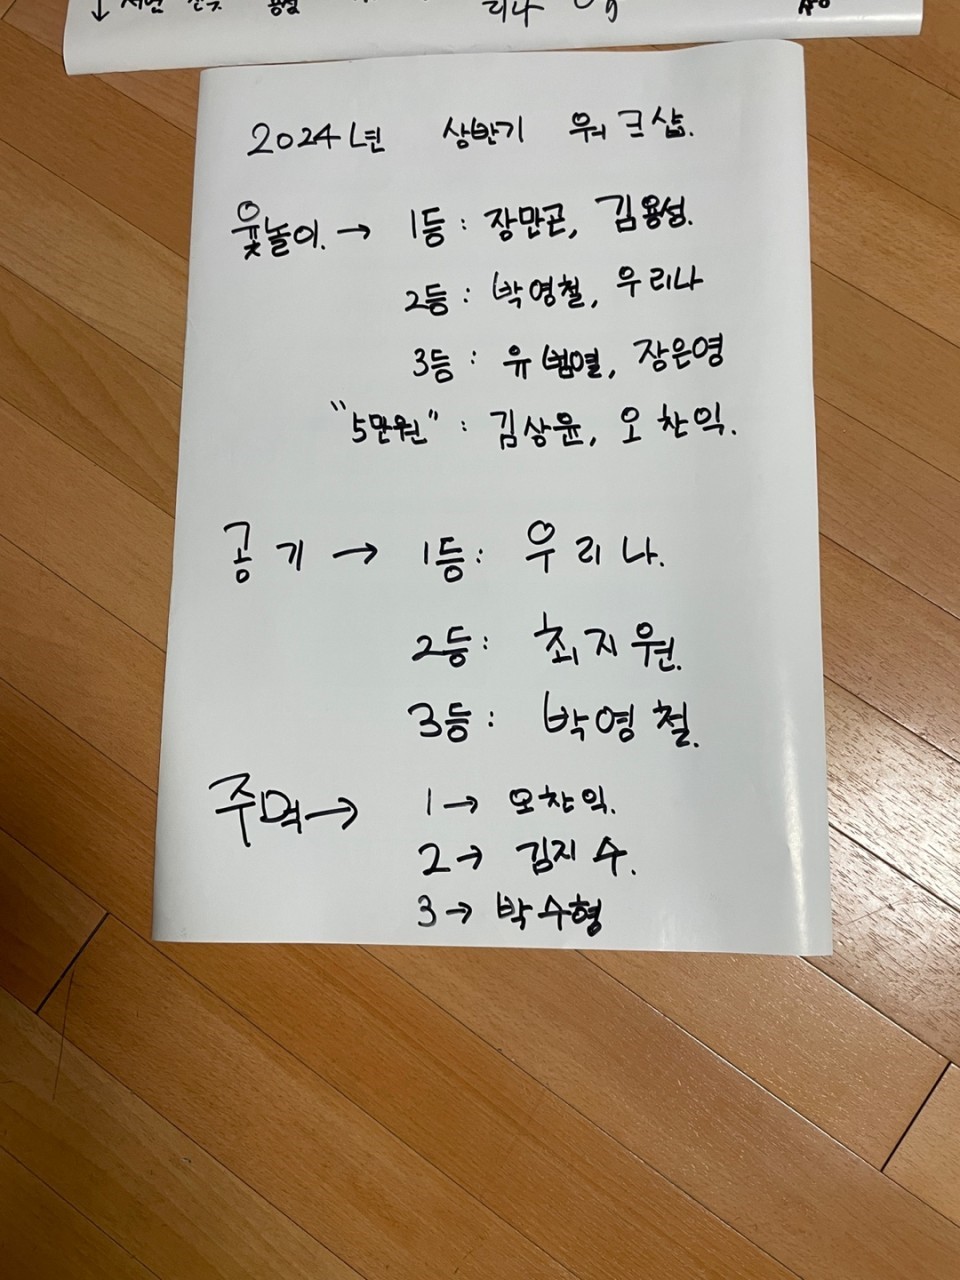 리나
2024년 상반기 워크샵.
윷놀이. → 1등 : 장만곤, 김용성.
2등 : 박영철, 우리나
3등 : 유범열, 장은영
"5만원" : 김상윤, 오찬익.
공기 → 1등: 우리나.
2등: 최지원.
3등: 박영철.
주먹 → 1 → 오찬익.
2 → 김지수.
3 → 박수형